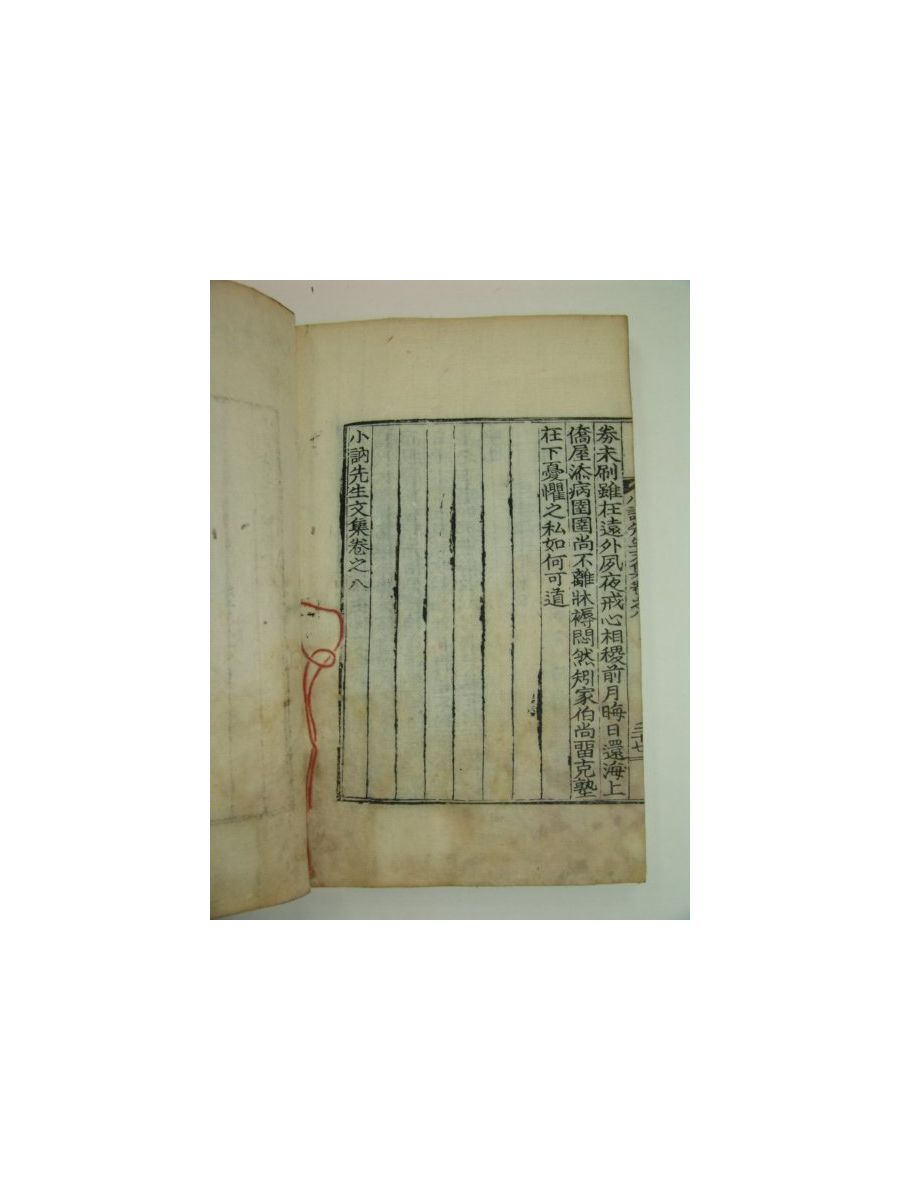 小訥先生文集卷之八
三十七
券未刷雖在遠外夙夜戒心相稷前月晦日還海上
僑屋添病圉圉尚不離牀褥悶然矧家伯尚留克塾
在下憂懼之私如何可道
小訥先生文集卷之八